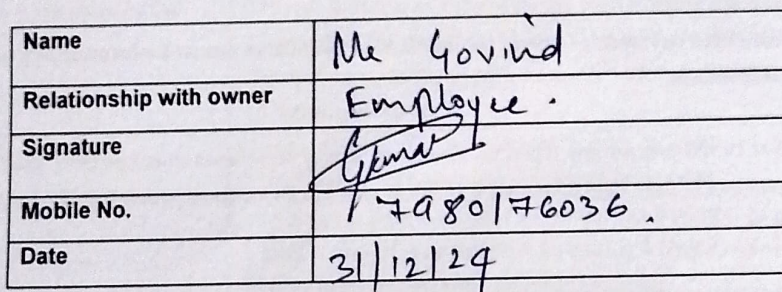 Name Mr Govind
Relationship with owner Employee.
Signature
Mobile No. 7980176036.
Date 31/12/24